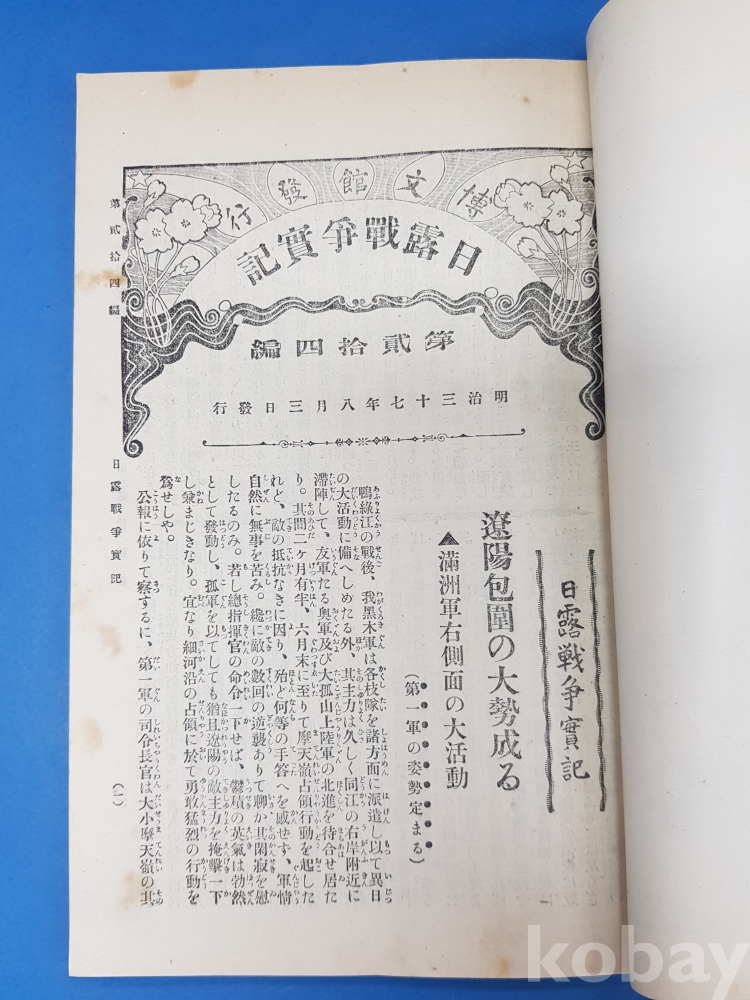 博文館發行
日露戰爭實記
第貳拾四編
明治三十七年八月三日發行
日露戰爭實記
遼陽包圍の大勢成る
▲滿洲軍右側面の大活動
(第一軍の姿勢定まる)
鴨綠江の戰後、我黑木軍は各枝隊を諸方面に派遣し以て異日
の大活動に備へしめたる外、其主力は久しく同江の右岸附近に
滯陣して、友軍たる奧軍及び大孤山上陸軍の北進を待合せ居た
り。其間二ヶ月有半、六月末に至りて摩天嶺占領行動を起した
れど、敵の抵抗なきに因り、殆ど何等の手答へを感せず、軍情
自然に無事を苦み。纔に敵の數回の逆襲ありて聊か其閑寂を慰
したるのみ。若し總指揮官の命令一下せば、鬱積の英氣は勃然
として發動し、孤軍を以てしても猶且遼陽の敵主力を掩擊一下
し兼まじきなり。宜なり細河沿の占領に於て勇敢猛烈の行動を
爲せしや。
公報に依りて察するに、第一軍の司令長官は大小摩天嶺の其
第貳拾四編
日露戰爭實記
(一)
kobay